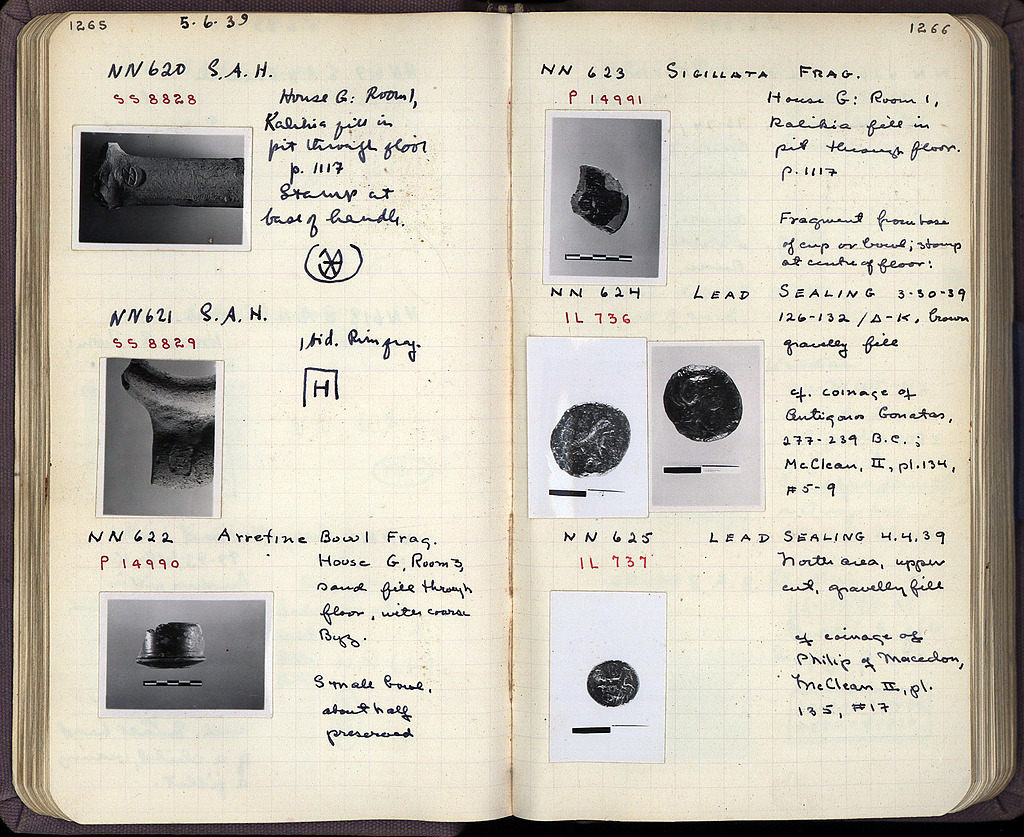 1265
5.6.39
NN620 S.A.H.
SS 8828
House G: Room 1,
Kalikia fill in
pit through floor
p. 1117
Stamp at
base of handle.
NN621 S.A.H.
SS 8829
Rim frag.
H
NN 622 Arretine Bowl Frag.
P 14990
House G, Room 3,
sand fill through
floor, with coarse
Byz.
Small bowl,
about half
preserved
1266
NN 623 SIGILLATA FRAG.
P 14991
House G: Room 1,
Kalikia fill in
pit through floor.
p. 1117
Fragment from base
of cup or bowl; stamp
at centre of floor:
NN 624 LEAD SEALING 3-30-39
IL 736
126-132 / Δ-K, brown
gravelly fill
cf. coinage of
Antigonos Gonatas,
277-239 B.C.;
McClean, II, pl. 134,
#5-9
NN 625 LEAD SEALING 4.4.39
IL 737
North area, upper
cut, gravelly fill
cf coinage of
Philip of Macedon,
McClean II, pl.
135, #17